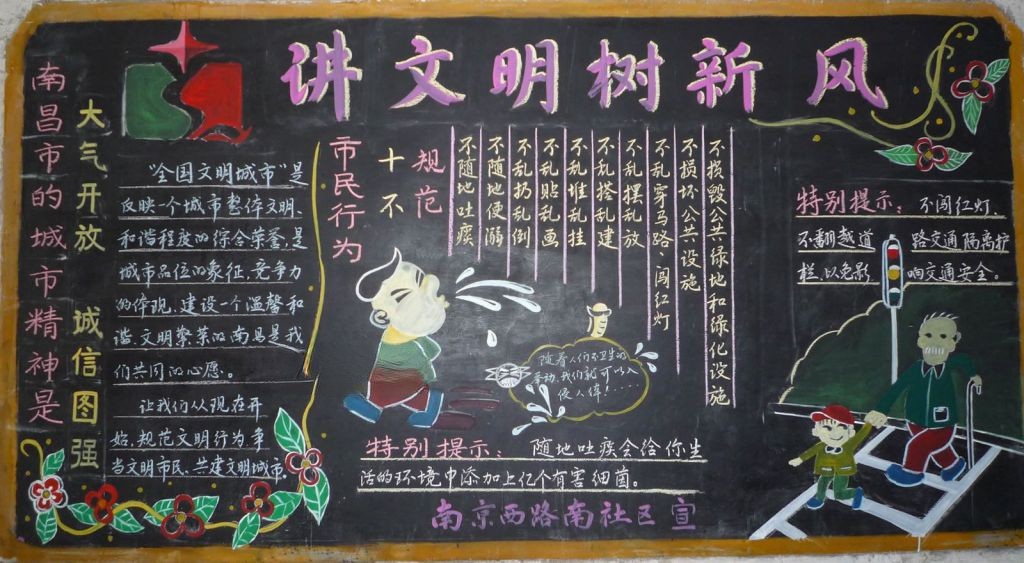 讲文明树新风
南昌市的城市精神是
大气开放 诚信图强
“全国文明城市”是
反映一个城市整体文明、
和谐程度的综合荣誉,是
城市品位的象征,竞争力
的体现,建设一个温馨和
谐、文明繁荣的南昌是我
们共同的心愿。
让我们从现在开
始,规范文明行为争
当文明市民、共建文明城市。
市民行为
十不
规范
不随地吐痰
不随地便溺
不乱扔乱倒
不乱贴乱画
不乱堆乱挂
不乱搭乱建
不乱摆乱放
不乱穿马路、闯红灯
不损坏公共设施
不损毁公共绿地和绿化设施
随着人们不卫生的
举动,我们就可以入
侵人体!....
特别提示:随地吐痰会给你生
活的环境中添加上亿个有害细菌。
南京西路南社区宣
特别提示:不闯红灯、
不翻越道路交通隔离护
栏,以免影响交通安全。